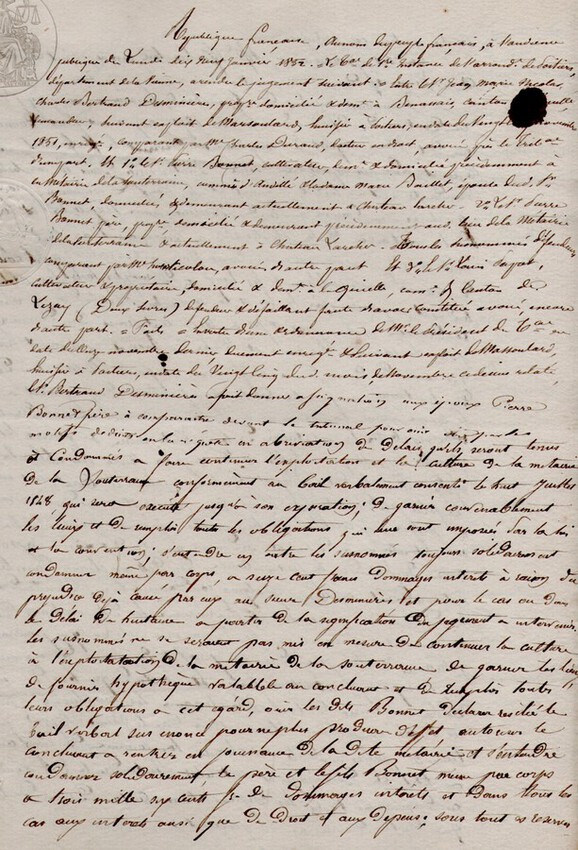 République française, au nom du peuple français, à l'audience
publique du Lundi dix neuf janvier 1852. Le tal de 1ère instance de l'arrond. de Poitiers,
département de la Vienne, a rendu le jugement suivant: Entre le Sr Jean Marie Nicolas
Charles Bertrand Desminières, propre domicilié & demt à Benassais, canton
suivant exploit de Massoulard, huissier à Poitiers, en date du Vingt novembre
1851, enreg., comparant par Me Charles Durand, licencié en droit, avoué près le Tribal
d'une part. Et 1° le Sr Pierre Bonnet, cultivateur, demt & domicilié précédemment à
la Métairie de la Souterraine, commune d'Anville & dame Marie Baillet, épouse dud. Sr
Bonnet, domiciliés & demeurant actuellement à Château Larcher 2° le Sr Pierre
Bonnet père, propre, domicilié & demeurant précédemment au lieu de la Métairie
de la Souterraine & actuellement à Château Larcher. Tous les susnommés défendeurs
comparant par Me, avoué, d'autre part Et 3° le Sr Louis
cultivateur & propriétaire, domicilié & demt à, comne & Canton de
Lezay (Deux Sèvres) défendeur & défaillant faute d'avoir constitué avoué encore
d'autre part. Faits à suite d'une ordonnance de Mr le Président du Tal en
date du onze novembre dernier dument enreg. & suivant exploit de Massoulard,
huissier à Poitiers, en date du Vingt cinq dud. mois de Novembre ci dessus relaté,
le Sr Bertrand Desminières a fait donner assignation aux époux Pierre
Bonnet & père à comparaitre devant le tribunal pour ouir dire que par les
motifs déduits en la requête en abréviation de délai, qu'ils seront tenus
et Condamnés à faire continuer l'exploitation et la culture de la métairie
de la Souterraine conformément au bail verbalement consenti le huit Juillet
1848 qui sera exécuté jusqu'à son expiration; de garnir convenablement
les lieux et de remplir toutes les obligations qui leur sont imposées par la loi
et la convention, s'entendre en outre les susnommés toujours solidairement
condamner même par corps, a seize cent francs dommages intérêts à raison du
prejudice déjà causé par eux au sieur Desminières et pour le cas ou dans
le délai de huitaine a partir de la signification du jugement a intervenir
les susnommés ne se seraient pas mis en mesure de continuer la culture
à l'exploitatation de la métairie de la souterraine de garnir les lieux
de fournir hypothèque valable au concluant et de remplir toutes
leurs obligations a cet égard, ouir les dits Bonnet déclarer résilié le
bail verbal sus énoncé pour ne plus produire d'effet autoriser le
concluant a rentrer en jouissance de la dite métairie et s'entendre
condamner solidairement le père et le fils Bonnet même par corps
a trois mille six cents f. de dommages intérêts et Dans tous les
cas aux intérêts ainsi que de Droit et aux dépens; sous toutes reserves